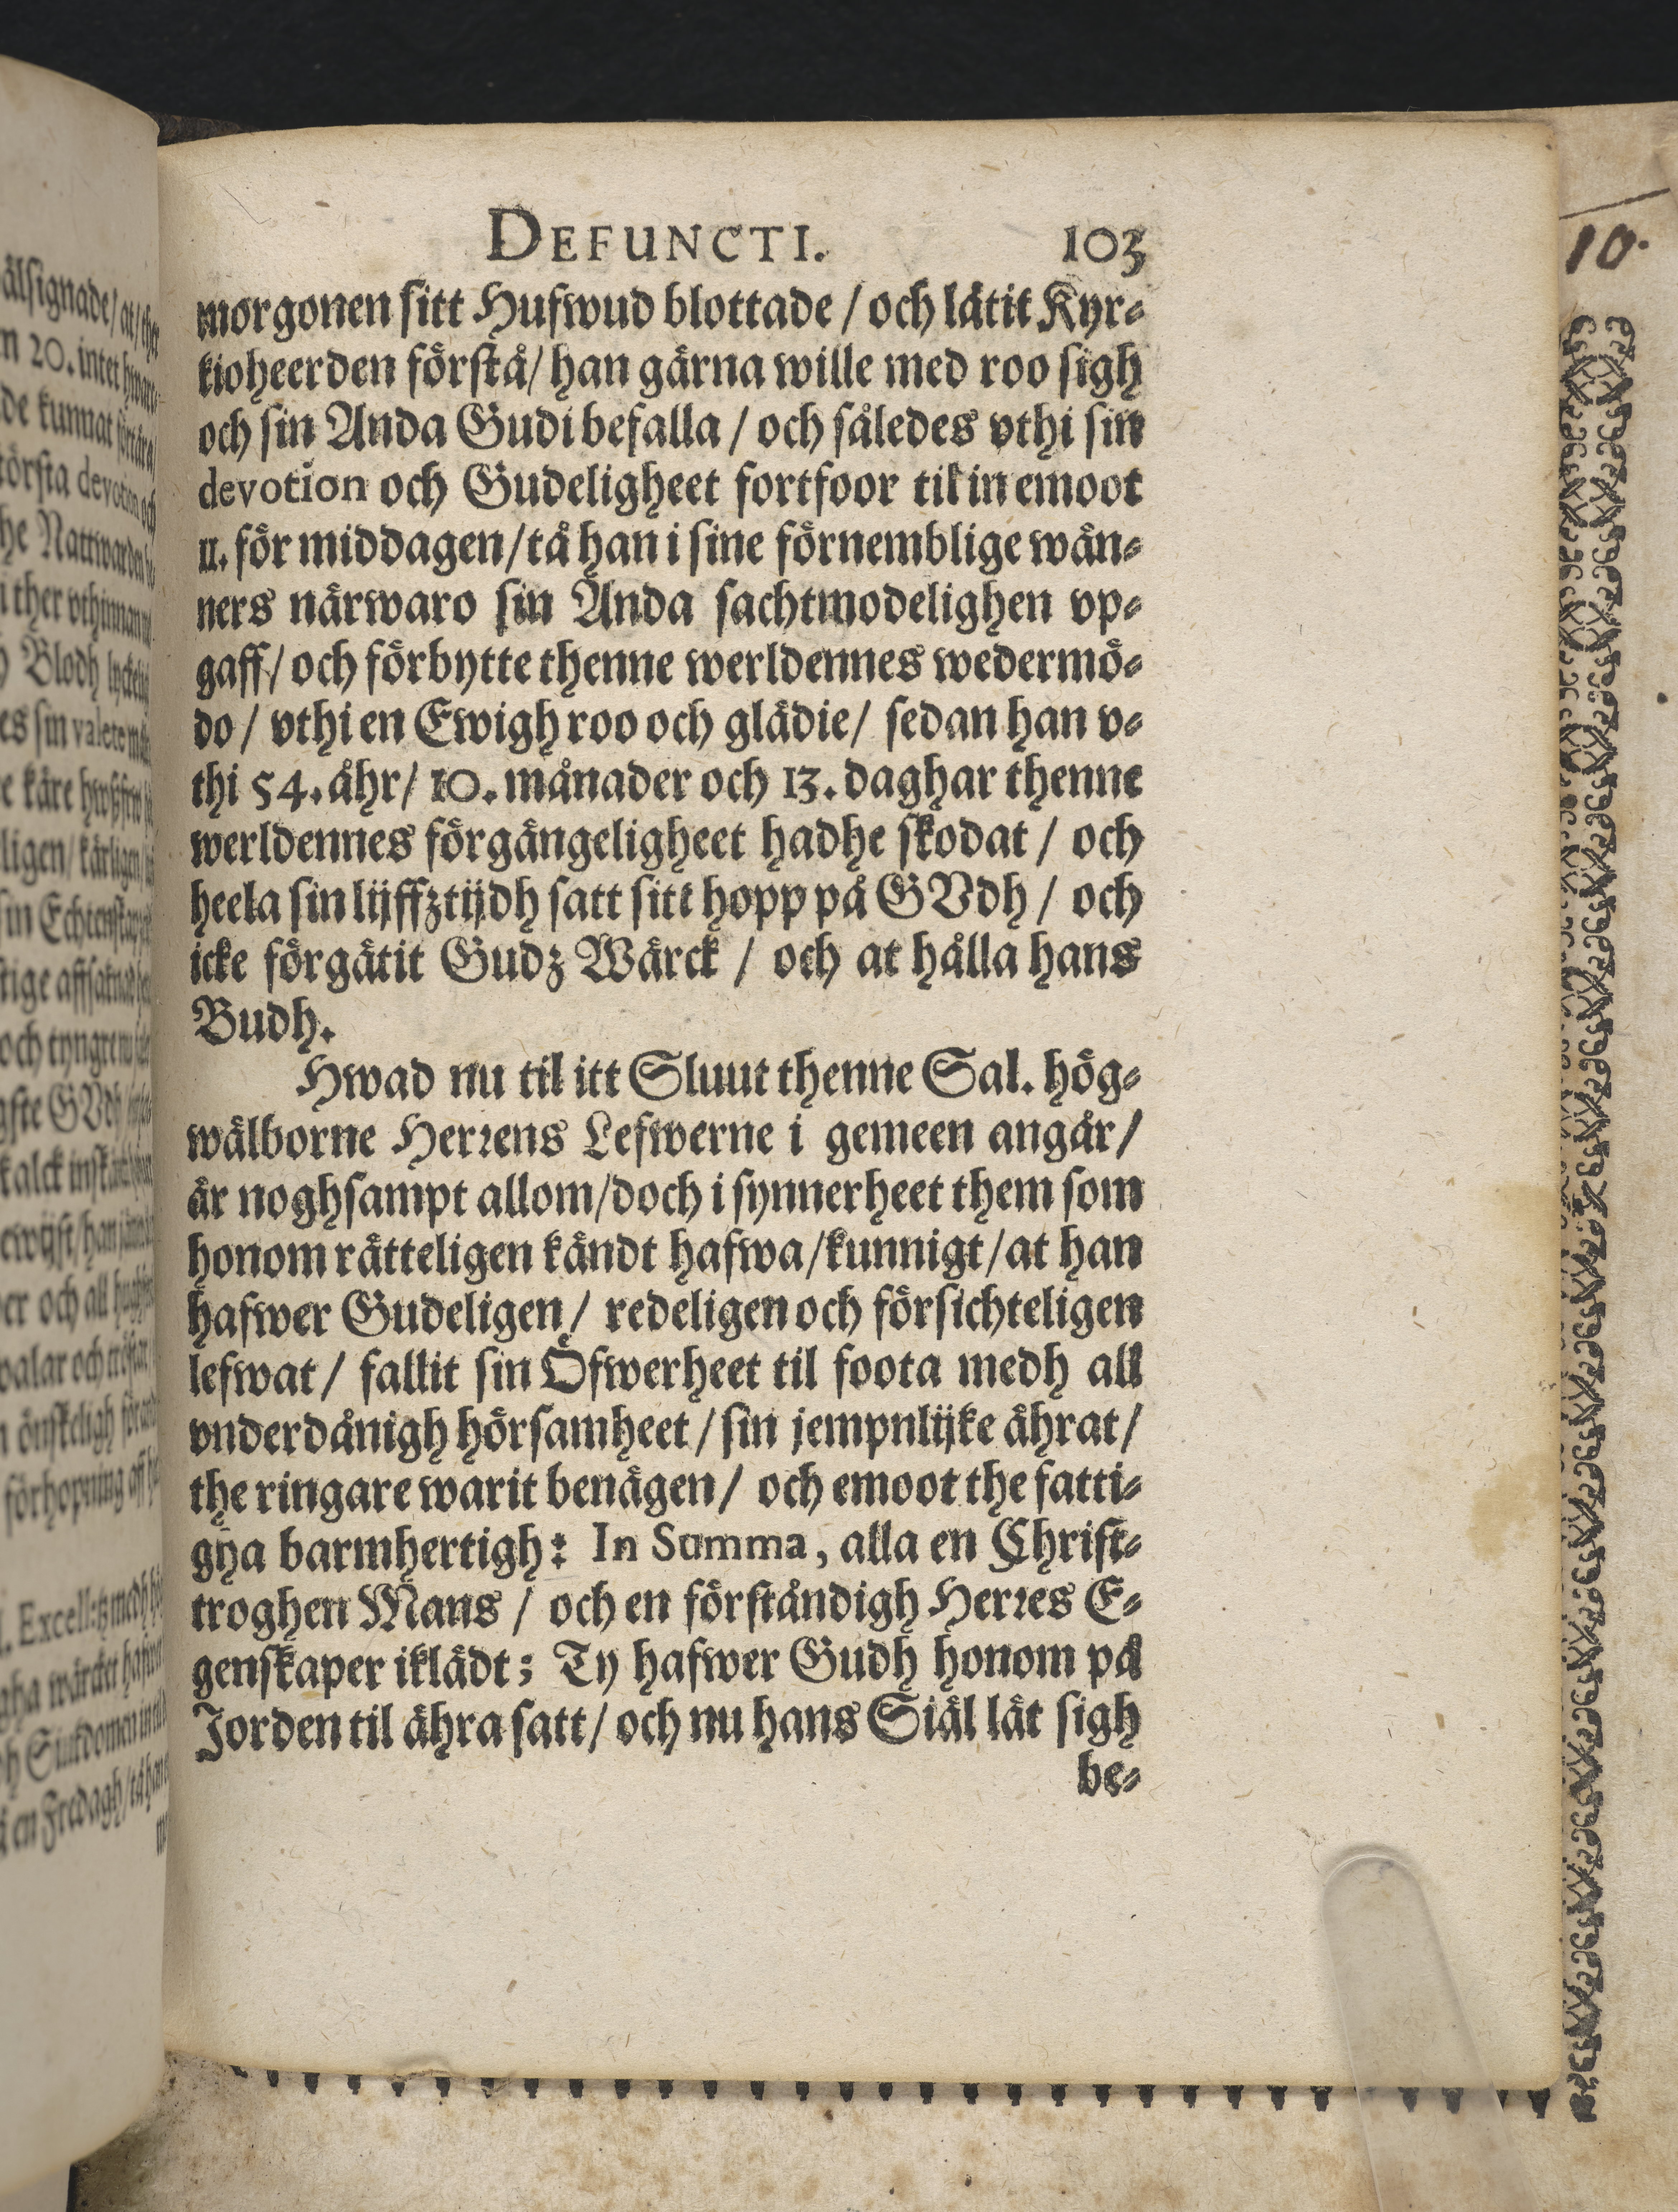 DEFUNCTI. 103
morgonen sitt Hufwud blottade / och låtit Kyr-
kioheerden förstå / han gärna wille med roo sigh
och sin Anda Gudi befalla / och således vthi sin
devotion och Gudeligheet fortfoor til in emoot
11. för middagen / tå han i sine förnemblige wän-
ners närwaro sin Anda sachtmodelighen vp-
gaff / och förbytte thenne werldennes wedermö-
do / vthi en Ewigh roo och glädie / sedan han v-
thi 54. åhr / 10. månader och 13. daghar thenne
werldennes förgängeligheet hadhe skodat / och
heela sin lijffztijdh satt sitt hopp på GVdh / och
icke förgätit Gudz Wärck / och at hålla hans
Budh.
Hwad nu til itt Sluut thenne Sal. hög-
wälborne Herrens Lefwerne i gemeen angår /
är noghsampt allom / doch i synnerheet them som
honom rätteligen kändt hafwa / kunnigt / at han
hafwer Gudeligen / redeligen och försichteligen
lefwat / fallit sin Öfwerheet til foota medh all
vnderdånigh hörsamheet / sin jempnlijke ährat /
the ringare warit benägen / och emoot the fatti-
gha barmhertigh: In Summa, alla en Christ-
troghen Mans / och en förståndigh Herres E-
genskaper iklädt; Ty hafwer Gudh honom på
Jorden til ähra satt / och nu hans Siäl lät sigh
be-
10.
älsignade / at / ther
20. intet
de kunnat
törsta devotion och
he Nattwarden
ther vthinnan
Blodh
es sin valete
e käre
ligen / kärligen
sin
tige
och
GVdh
kalck
han
er och all
walar och
önskeligh
förhopning aff
Excell:tz medh
gha wärcket
Siukdomen
en Fredagh / tå han